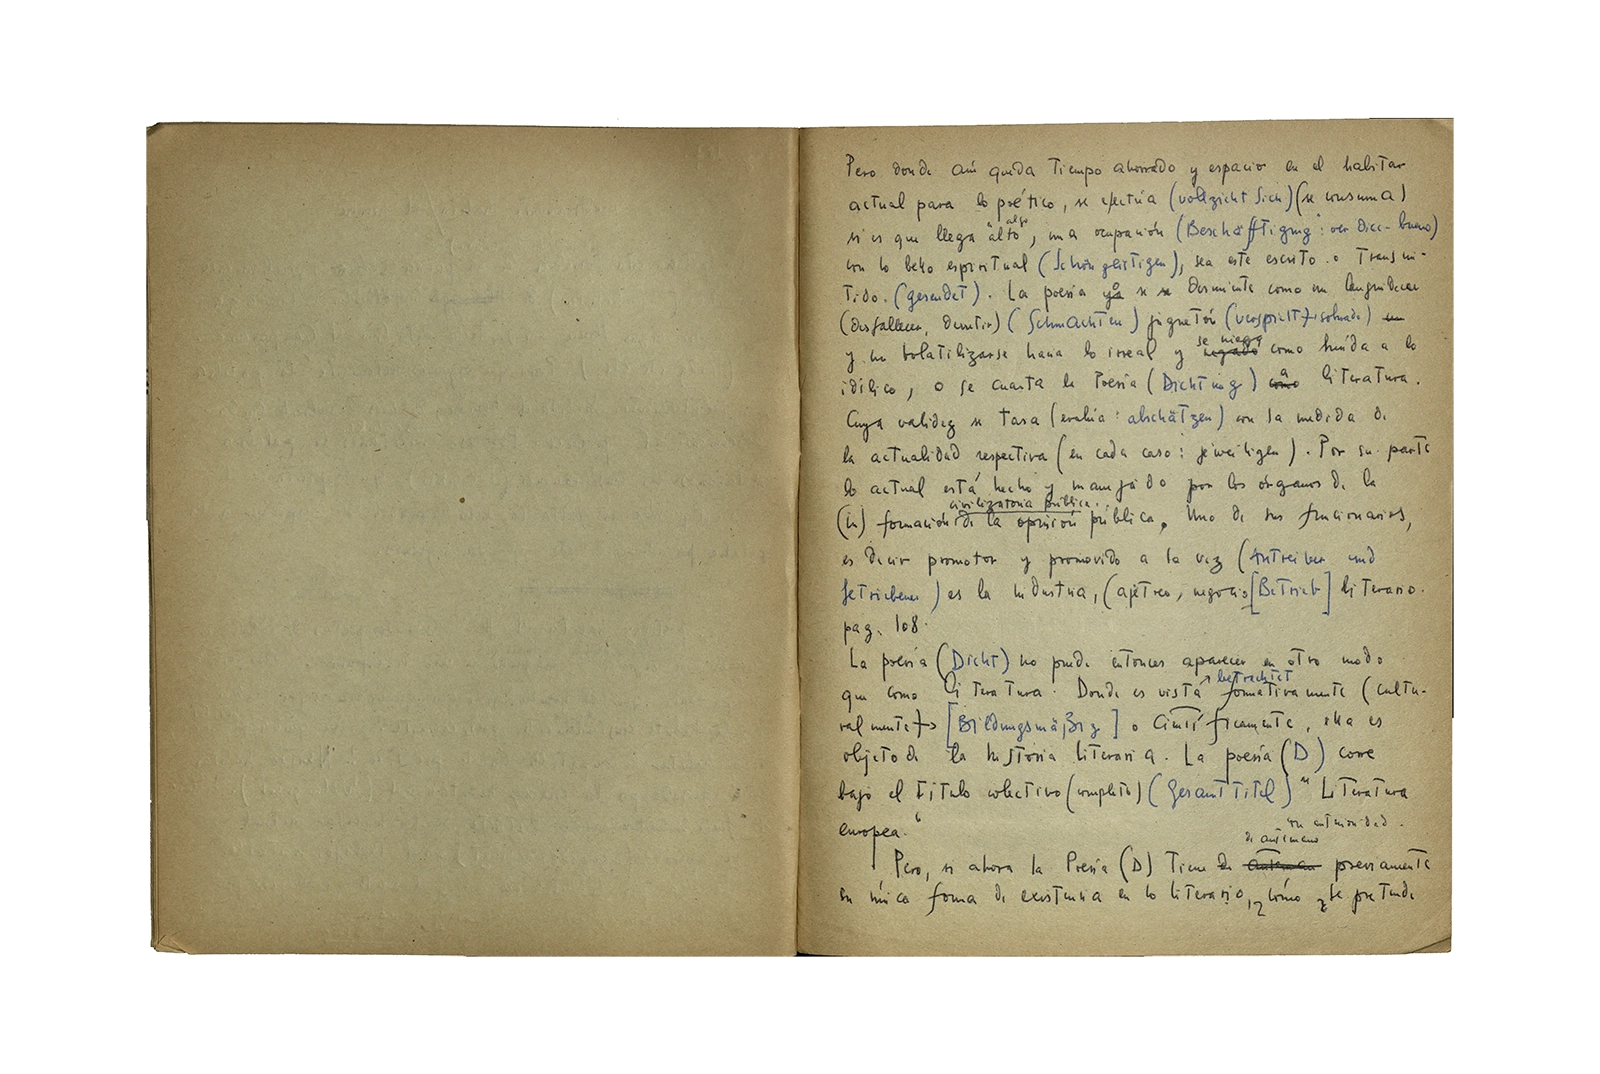 Pero donde aún queda tiempo ahorrado y espacio en el habitar
actual para lo poético, se efectúa (vollzicht sich) (se consuma)
si es que llega "alto" algo, una ocupación (Beschäfftigung: ver dicc. bueno)
con lo bello espiritual (Schöngeistigen), sea este escrito o transmi-
tido. (gesendet). La poesía ya o se se desmiente como un languidecer
(desfallecer, derretir) (Schmachten) juguetón (verspielt + soñado) un
y un volatilizarse hacia lo irreal y negado se niega como huída a lo
idílico, o se cuenta la Poesía (Dichtung) como a literatura.
Cuya validez se tasa (evalúa: abschätzen) con la medida de
la actualidad respectiva (en cada caso: jeweiligen). Por su parte
lo actual está hecho y manejado por los órganos de la
civilizatoria pública.
(la) formación de la opinión pública. Uno de sus funcionarios,
es decir promotor y promovido a la vez (Antreiber und
Getriebener) es la industria, (ajetreo, negocio [Betrieb] literario.
pag. 108.
La poesía (Dicht) no puede entonces aparecer en otro modo
que como literatura. Donde es vista betrachtet formativamente (cultu-
ralmente) → [Bildungsmäßig] o científicamente, ella es
objeto de la historia literaria. La poesía (D) corre
bajo el título colectivo (completo) (Gesamttitel) "Literatura
europea."
con anterioridad.
de antemano
Pero, si ahora la Poesía (D) tiene de anteman previamente
su única forma de existencia en lo literario, ¿cómo se pretende